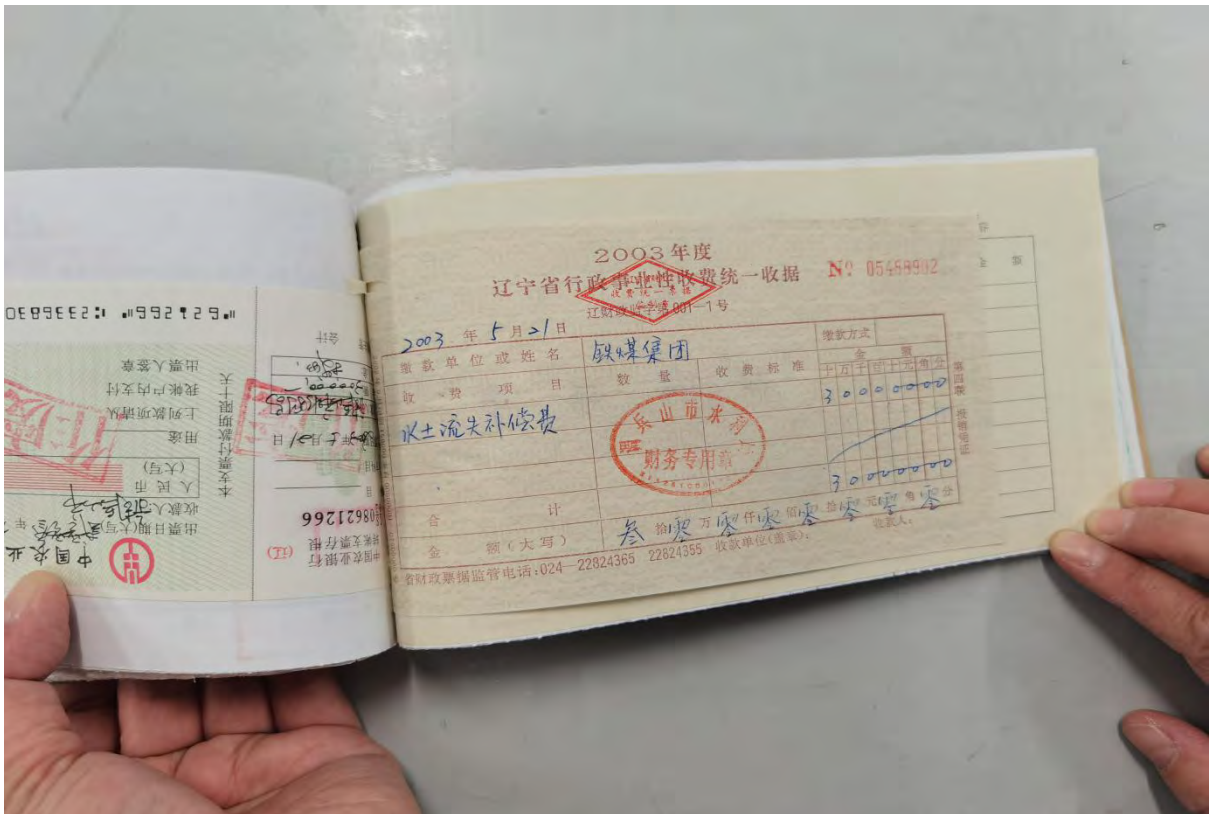 2003年度
辽宁省行政事业性收费统一收据 № 05468902
辽财政监字第001—1号
2003 年 5 月 21 日
缴款单位或姓名 铁煤集团 缴款方式
收费项目 数量 收费标准 金额
十万千百十元角分
水土流失补偿费 30000000
合计 30000000
金额(大写) 叁拾零万零仟零佰零拾零元零角零分
省财政票据监管电话:024—22824365 22824355 收款单位(盖章): 收款人:
第四联 报销凭证
兵山市水利
财务专用章
中国农业银行
转账支票存根
(辽)
08621266
会计
本支票付款期限十天
中国农业
出票日期(大写)
收款人
人民币
(大写)
用途
上列款项请从
我帐户内支付
出票人签章